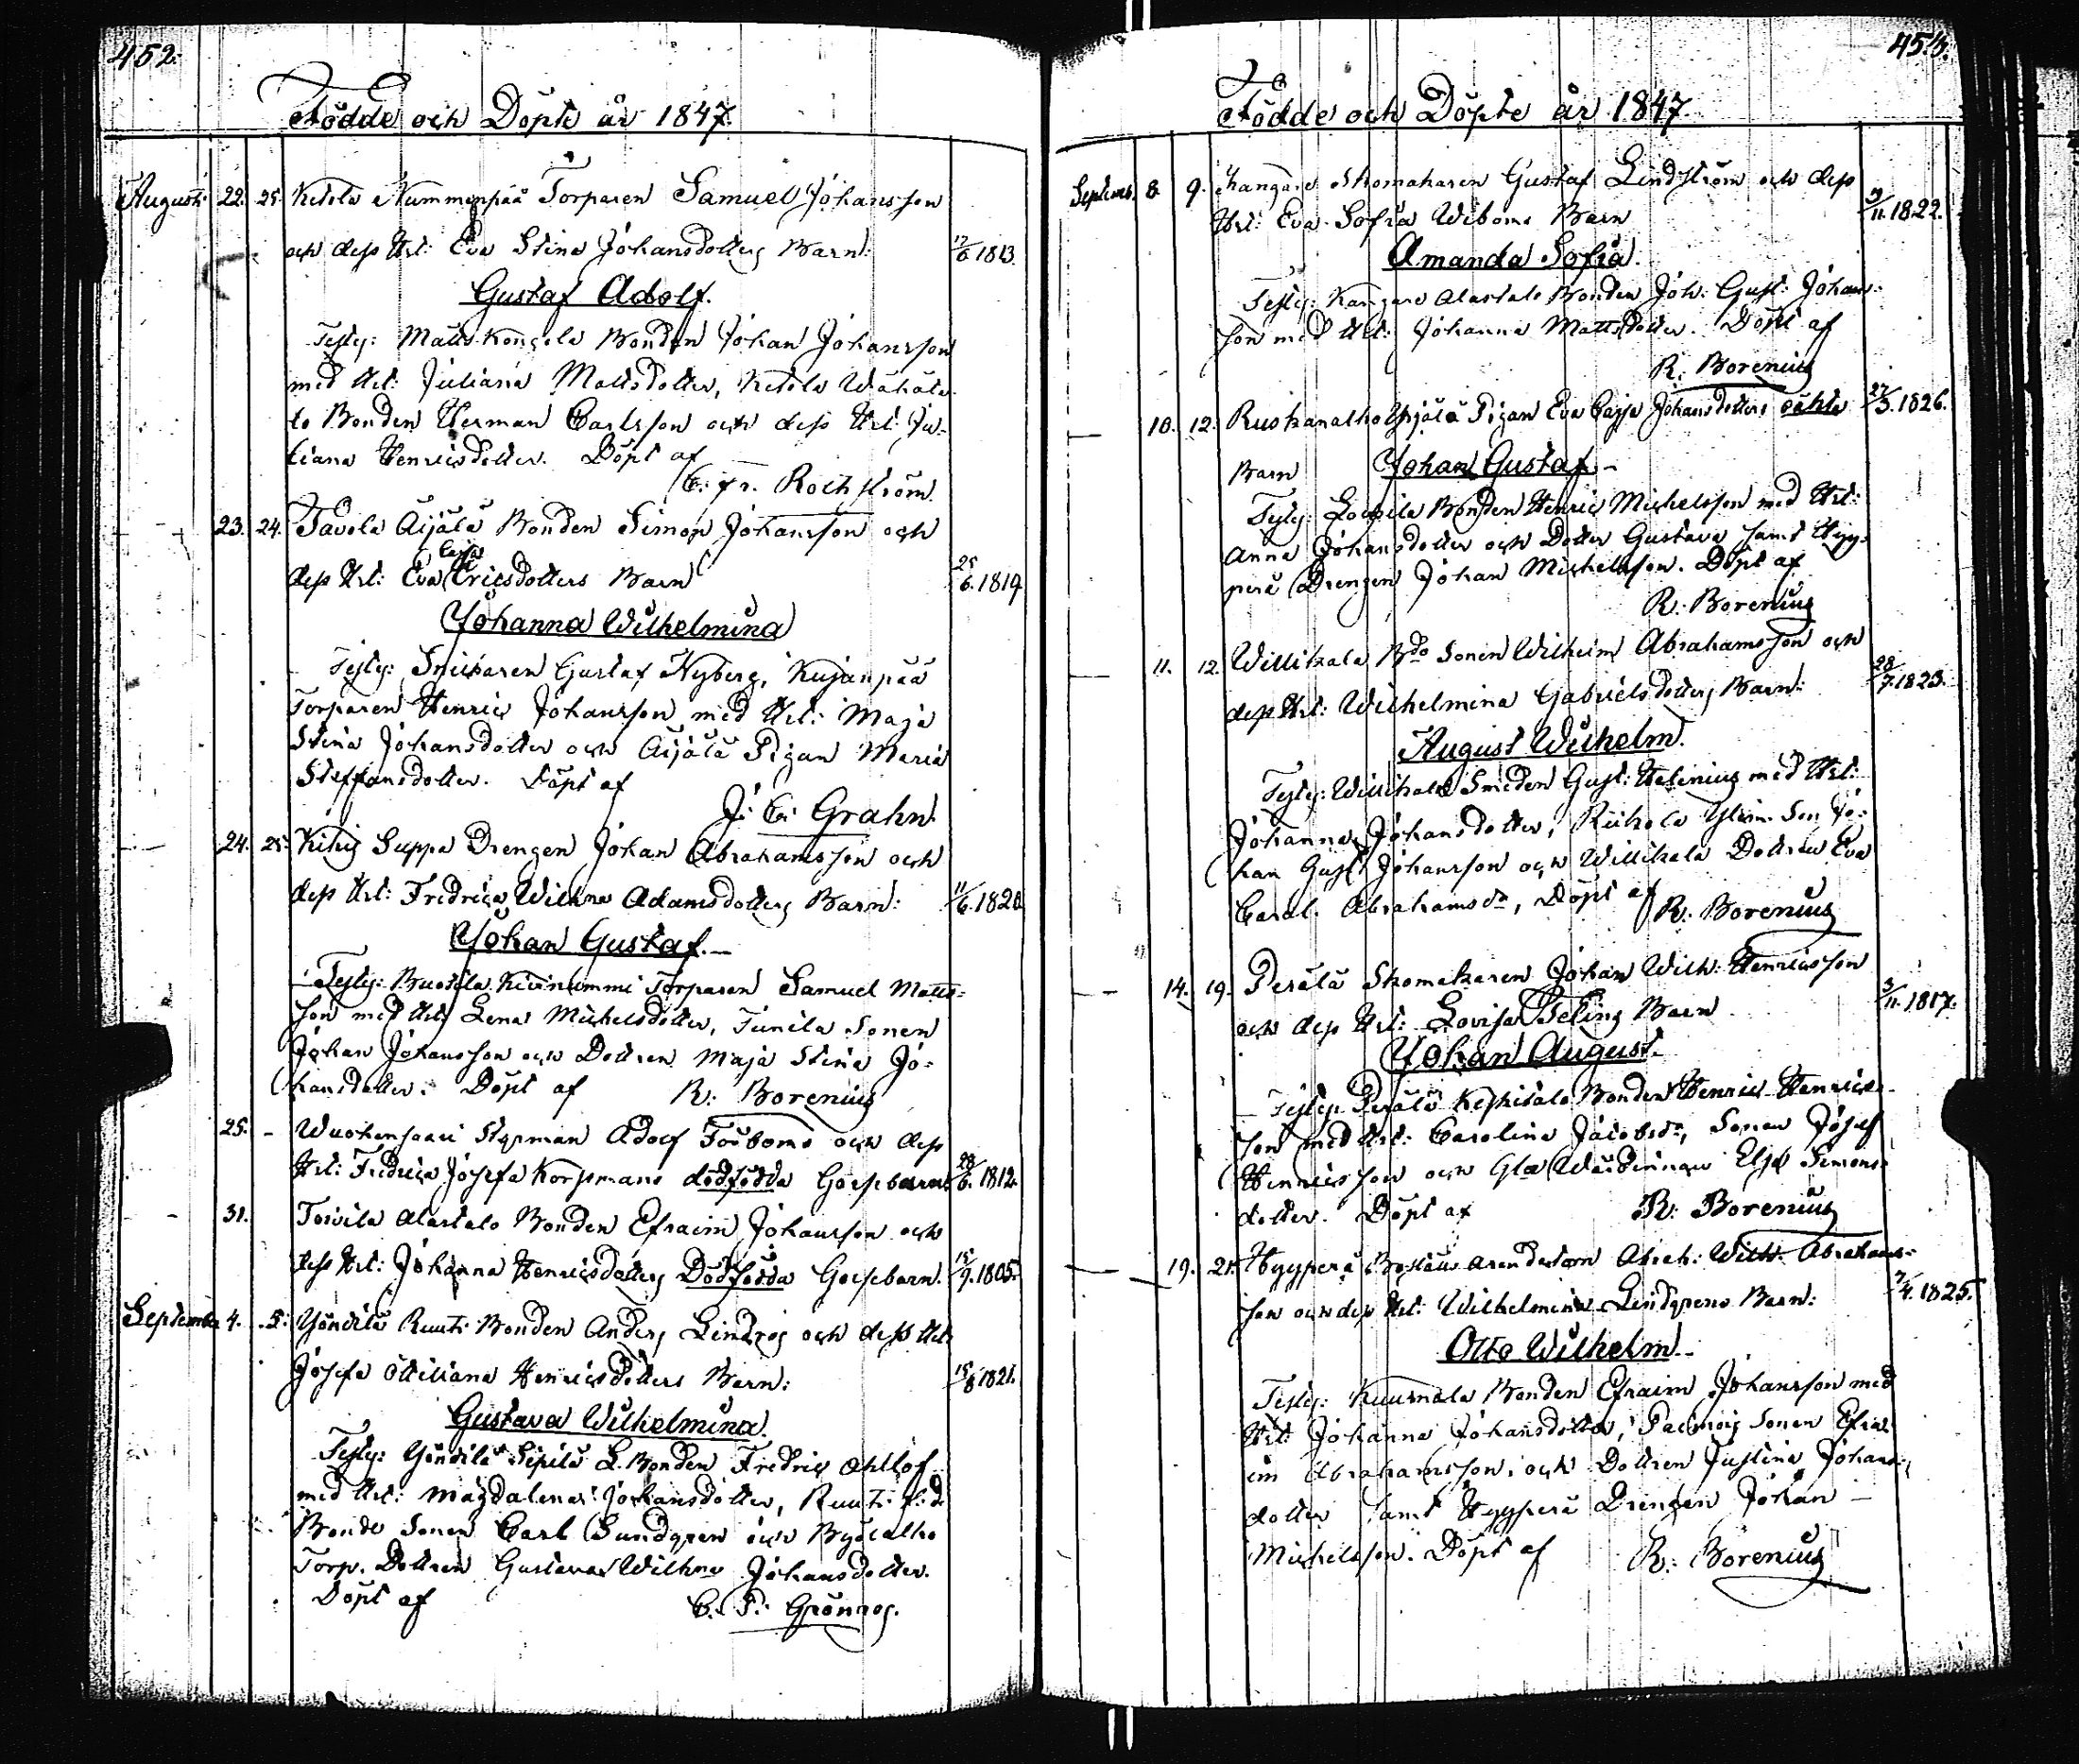 452.
Födde och Döpte år 1847.
Augusti 22. 25. Ketola Nummenpää Torparen Samuel Johansson
och dess Hst: Eva Stina Johansdotters Barn: 17/6 1813.
Gustaf Adolf.
Testes: Matts Bonden Johan Johansson
med Hst: Juliana Mattsdotter, Ketola
to Bonden Herman Carlsson och dess Hst: Ju-
liana Henricsdotter. Döpt af
Rothström.
23. 24. Tavola Äijälä Bonden Simon Johansson och
dess Hst: Eva Cajsa Ericsdotters Barn 25/6. 1819
Johanna Wilhelmina
Testes: Snickaren Gustaf Nyberg, Kujanpää
Torparen Henric Johansson med Hst: Maja
Stina Johansdotter och Äijälä Pigan Maria
Steffansdotter. Döpt af
J. Er. Grahn.
24. 25. Seppä Drengen Johan Abrahamsson och
dess Hst: Fredrica Wilhna Adamsdotters Barn: 11/6. 1820
Johan Gustaf.
Testes: Kivinummi Torparen Samuel Matts-
son med Hst: Lena Michelsdotter, Junila Sonen
Johan Johansson och Dottren Maja Stina Jo-
hansdotter. Döpt af R. Borenius
25. - Styrman Adolf Töuboms och dess
Hst: Fredrica Josefa Korpmans dödfödda Gossebarn. 28/6. 1812.
31. Toivila Alastalo Bonden Efraim Johansson och
dess Hst: Johanna Henricsdotters Dödfödda Gossebarn. 15/9. 1805.
September 4. 5. Yöntilä Ruuti Bonden Anders Lindros och dess Hst
Josefa Ottiliana Henricsdotters Barn: 15/8 1821.
Gustava Wilhelmina.
Testes: Yöntilä Sipilä L. Bonden Fredric Ahllof
med Hst: Magdalena Johansdotter, Ruuti f.d.
Bonde Sonen Carl Sundqren och
Torp. Dottren Gustava Wilhna Johansdotter.
Döpt af C. P. Grönros.
453.
Födde och Döpte år 1847.
Septemb. 8. 9. Kangare Skomakaren Gustaf Lindström och dess
Hst: Eva Sofia Wiboms Barn 9/11. 1822.
Amanda Sofia.
Testes: Kangare Alastalo Bonden Joh: Gust: Johans-
son med Hst: Johanna Mattsdotter. Döpt af
R. Borenius
10. 12. Ruskanalho Yrjälä Pigan Eva Cajsa Johansdotters oäkta 27/3. 1826.
Barn Johan Gustaf -
Testes: Bonden Henric Michelsson med Hst:
Anna Johansdotter och Dotter Gustava samt Hyy-
perä Drengen Johan Michelsson. Döpt af
R. Borenius
11. 12. Willikala Bde Sonen Wilhelm Abrahamsson och
dess Hst: Wilhelmina Gabrielsdotters Barn: 28/7. 1823.
August Wilhelm.
Testes: Willikala Smeden Gust: Helenius med Hst:
Johanna Johansdotter, Riihola Son Jo-
han Gust: Johansson och Willikala Dottren Eva
Carol. Abrahamsdr, Döpt af R: Borenius
14. 19. Perälä Skomakaren Johan Wilh: Henricsson
och dess Hst: Lovisa Selins Barn 3/11. 1817.
Johan August.
Testes: Perälä Keskitalo Bonden Henric Henrics-
son med Hst: Carolina Jacobsdr, Sonen Josef
Henricsson och Gla Wärdinnan Elsa Simons-
dotter. Döpt af R: Borenius
19. 21. Hyyperä Arendatorn Abrah: Wilh: Abrahams-
son och dess Hst: Wilhelmina Lindqrens Barn: 7/4. 1825.
Otto Wilhelm -
Testes: Kuusmala Bonden Efraim Johansson med
Hst: Johanna Johansdotter, Sonen Efra-
im Abrahamsson, och Dottren Justina Johans-
dotter samt Hyyperä Drengen Johan -
Michelsson. Döpt af R: Borenius